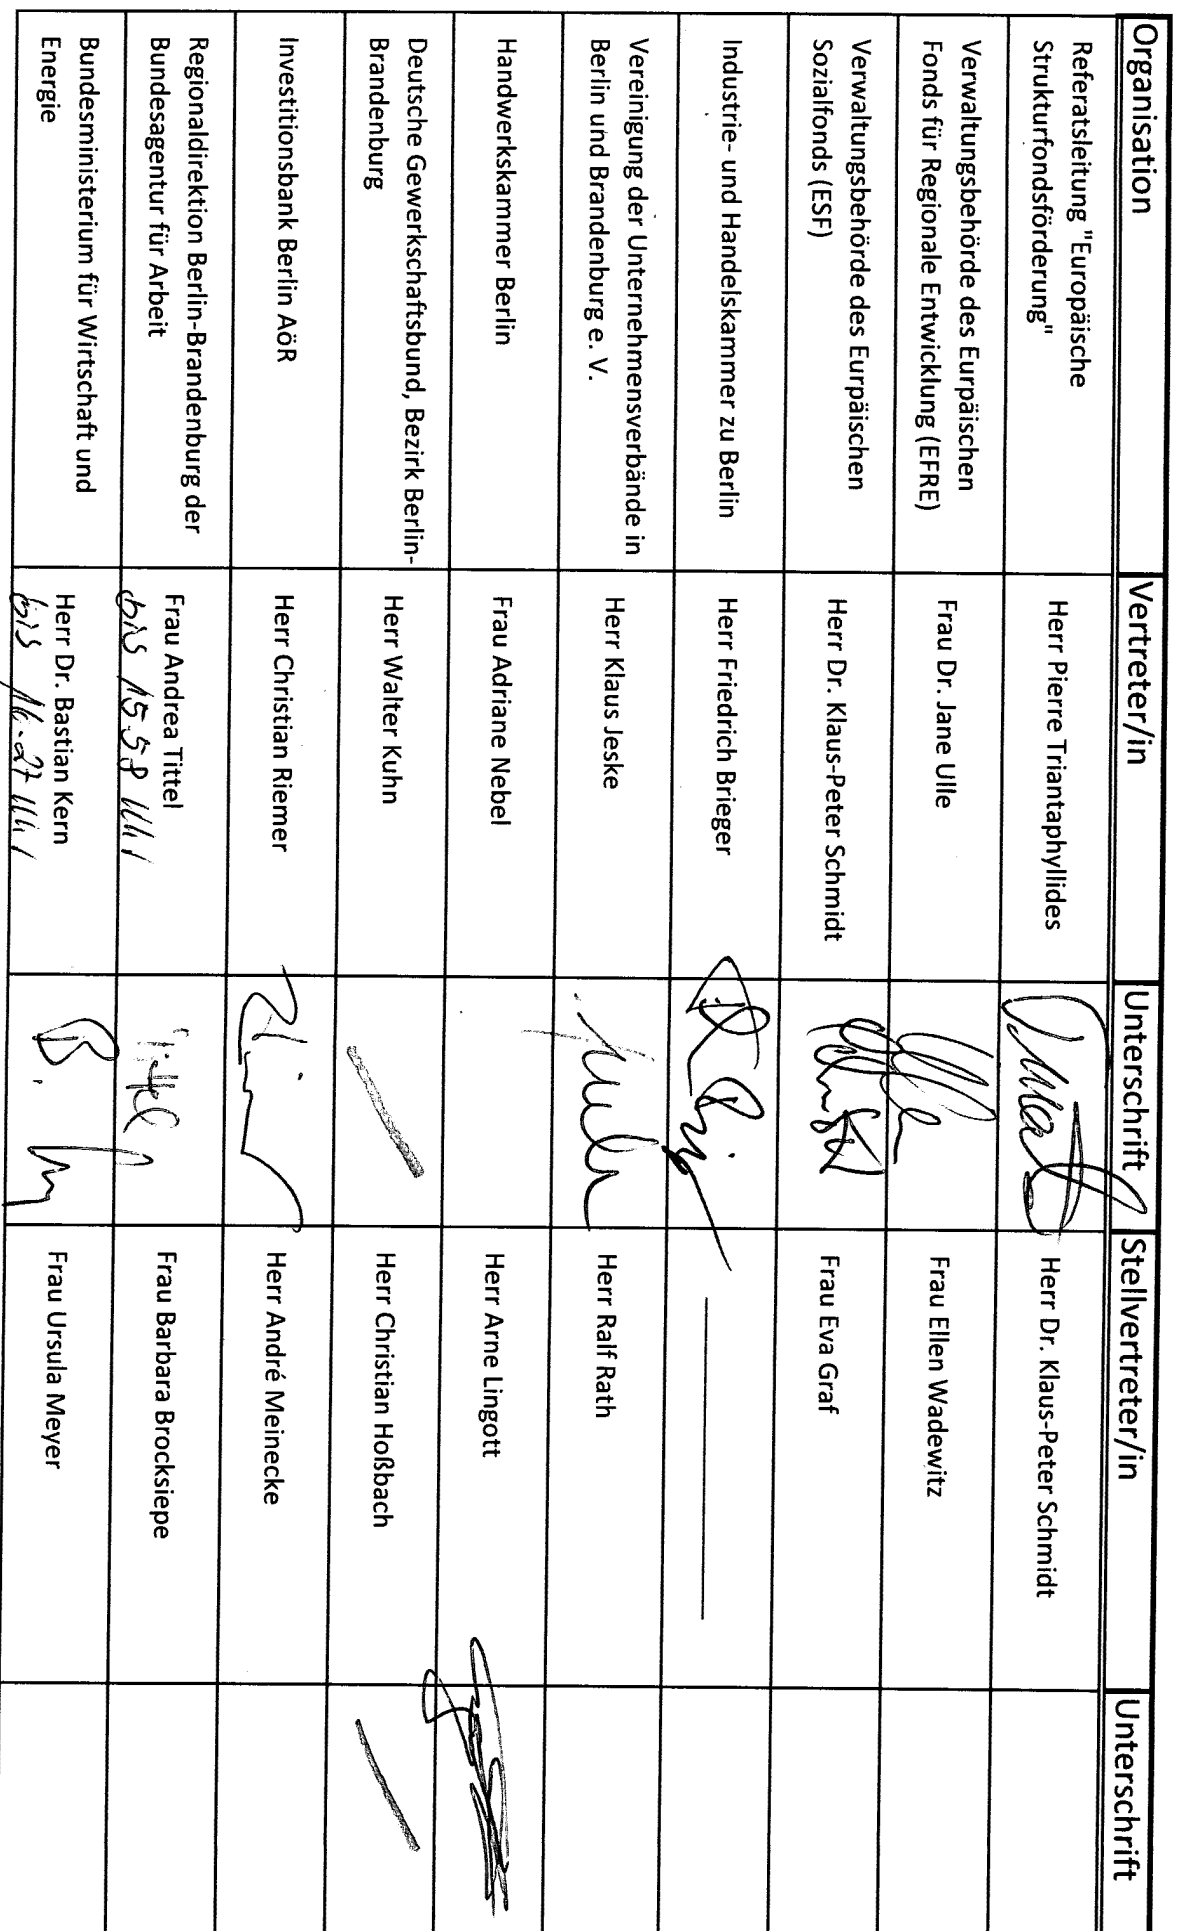 Organisation Vertreter/in Unterschrift Stellvertreter/in Unterschrift
Referatsleitung "Europäische
Strukturfondsförderung"
Herr Pierre Triantaphyllides
Herr Dr. Klaus-Peter Schmidt
Verwaltungsbehörde des Eurpäischen
Fonds für Regionale Entwicklung (EFRE)
Frau Dr. Jane Ulle
Frau Ellen Wadewitz
Verwaltungsbehörde des Eurpäischen
Sozialfonds (ESF)
Herr Dr. Klaus-Peter Schmidt
Frau Eva Graf
Industrie- und Handelskammer zu Berlin
Herr Friedrich Brieger
Vereinigung der Unternehmensverbände in
Berlin und Brandenburg e. V.
Herr Klaus Jeske
Herr Ralf Rath
Handwerkskammer Berlin
Frau Adriane Nebel
Herr Arne Lingott
Deutsche Gewerkschaftsbund, Bezirk Berlin-
Brandenburg
Herr Walter Kuhn
Herr Christian Hoßbach
Investitionsbank Berlin AöR
Herr Christian Riemer
Herr André Meinecke
Regionaldirektion Berlin-Brandenburg der
Bundesagentur für Arbeit
Frau Andrea Tittel
bis 15.58 Uhr
Tittel
Frau Barbara Brocksiepe
Bundesministerium für Wirtschaft und
Energie
Herr Dr. Bastian Kern
bis 16.27 Uhr
Frau Ursula Meyer